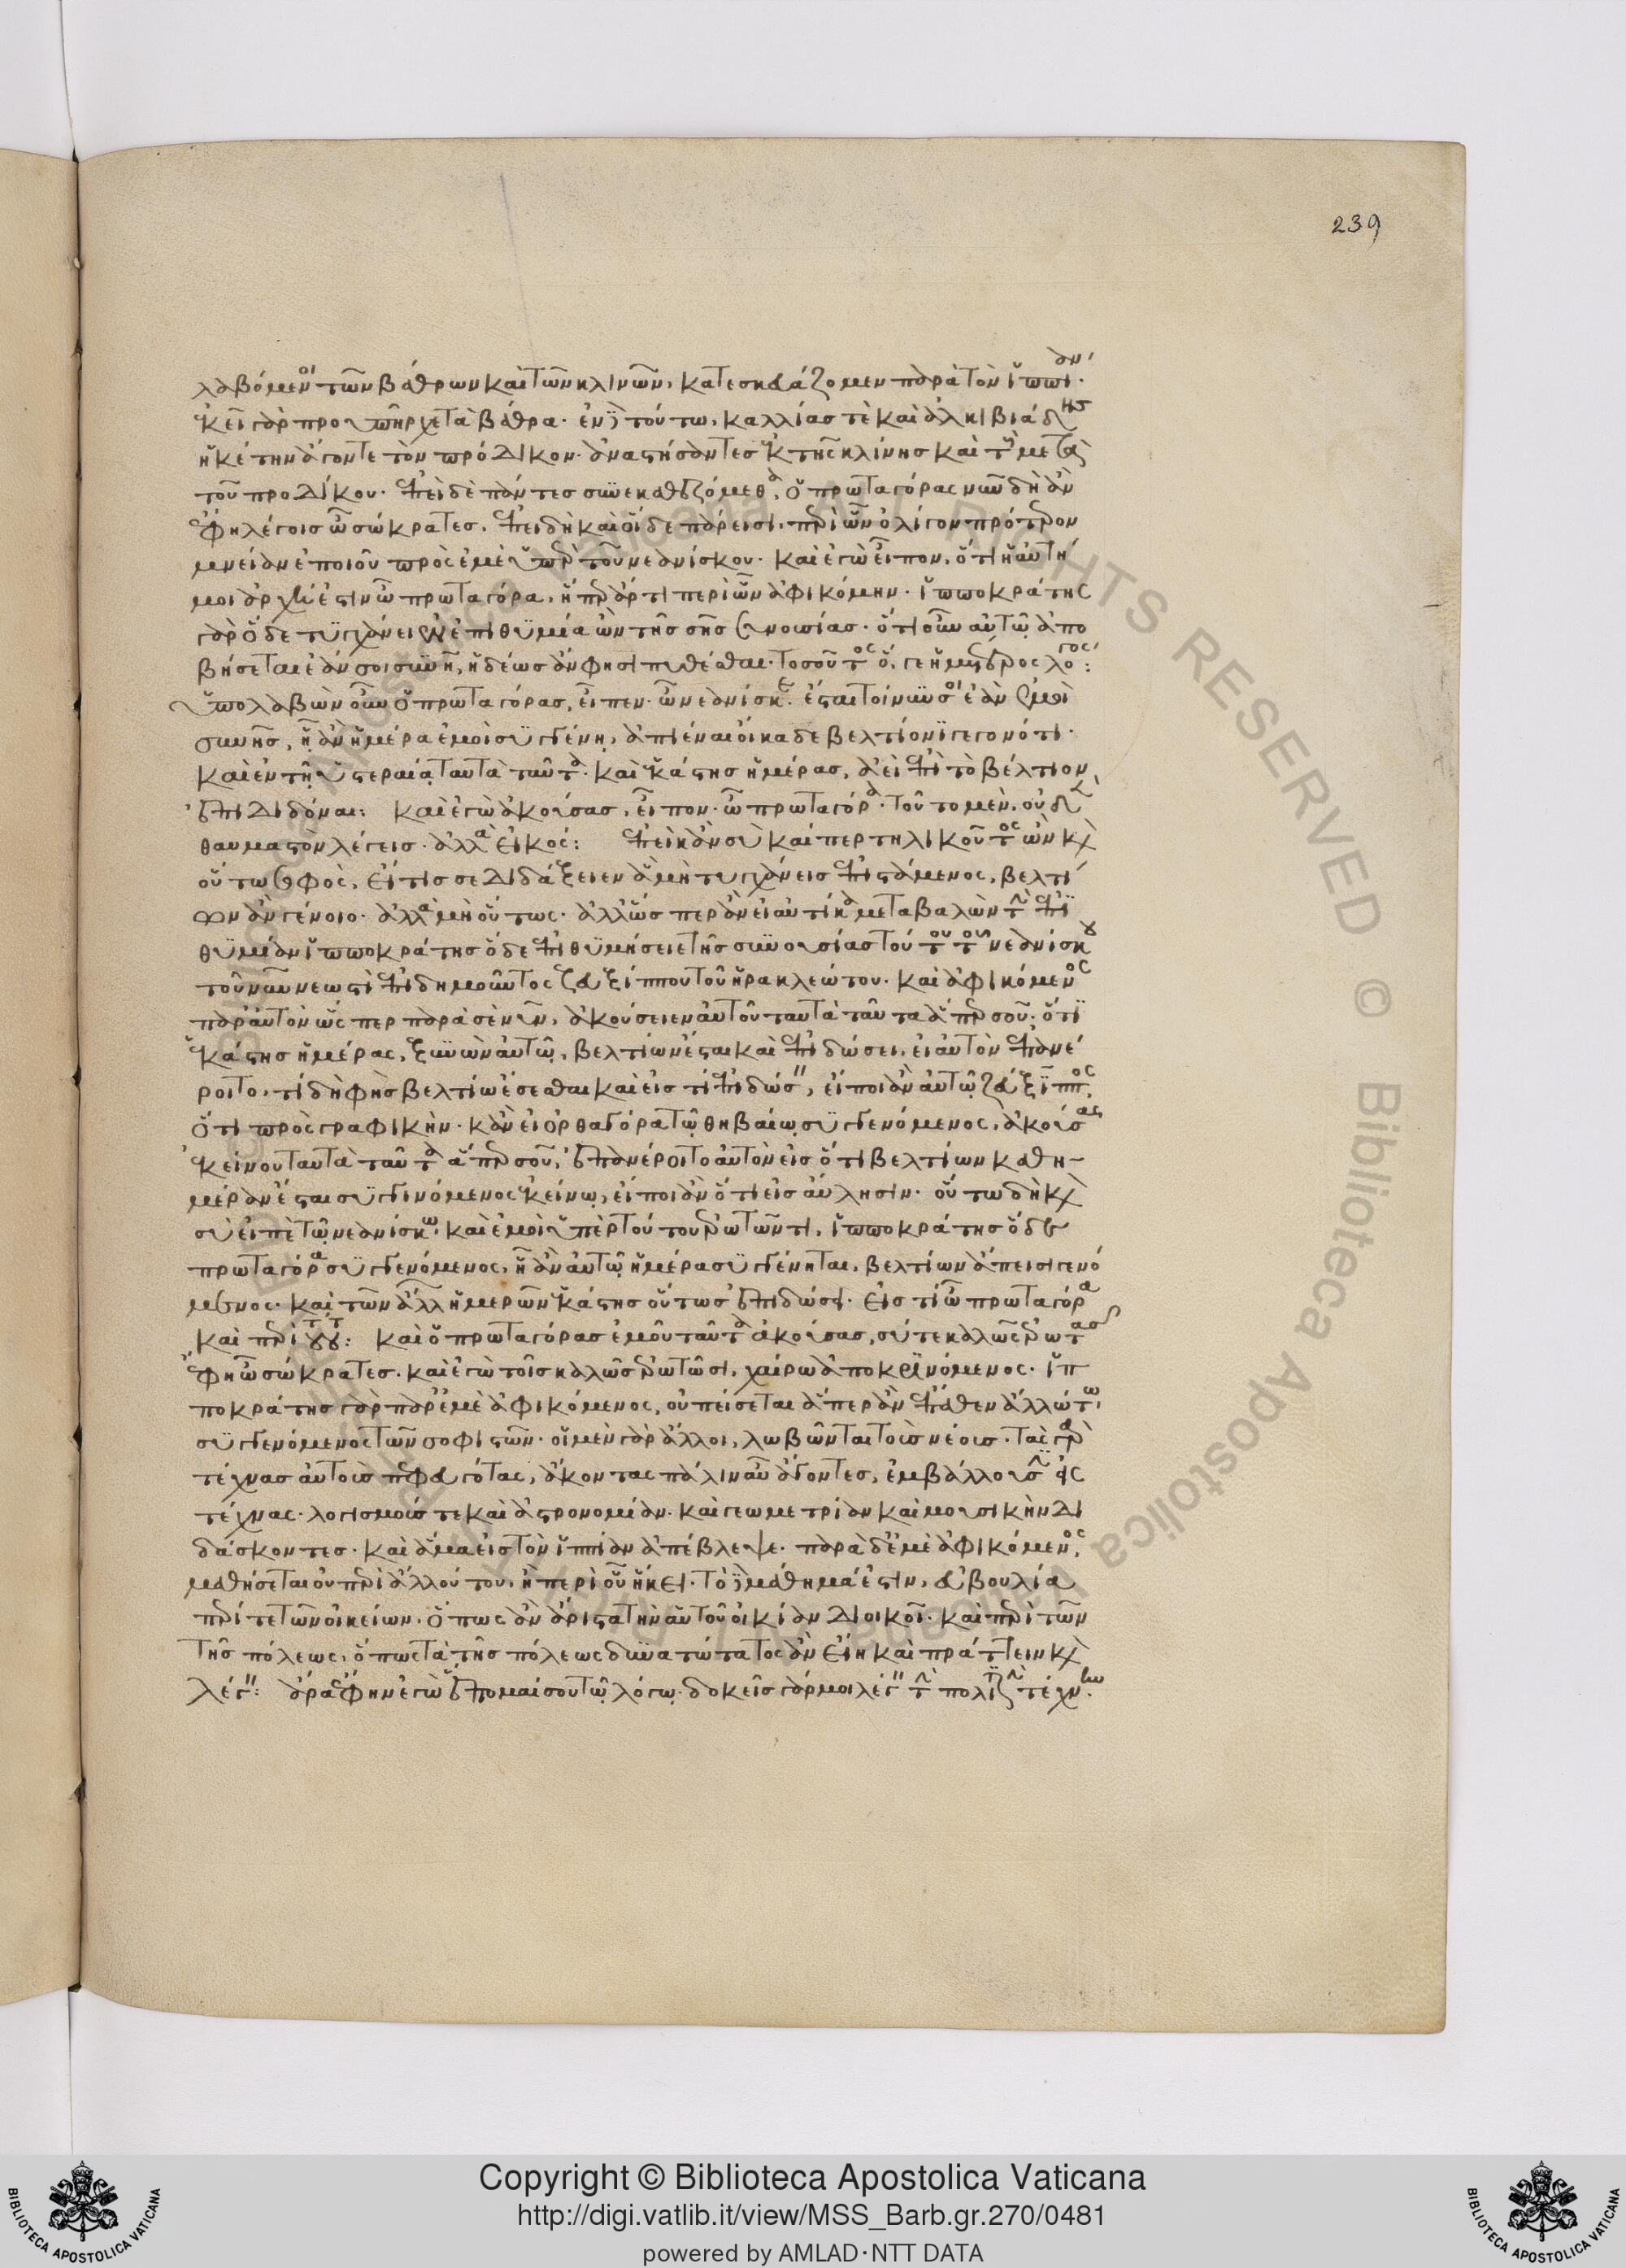 239
λαβόμενοι τῶν βάθρων καὶ τῶν κλινῶν, κατεσκευάζομεν παρὰ τὸν ἱππίαν·
ἐκεῖ γὰρ προυπῆρχε τὰ βάθρα· ἐν δὲ τούτω, καλλίας τὲ καὶ ἀλκιβιάδης
ἡκέτην ἄγοντε τὸν πρόδικον· ἀναστήσαντες ἐκ τῆς κλίνης καὶ τοὺς μετὰ
τοῦ προδίκου· ἐπεὶ δὲ πάντες συνεκαθεζόμεθα, ὁ πρωταγόρας νῦν δὴ ἂν
ἔφη λέγοις ὦ σώκρατες, ἐπειδὴ καὶ οἵδε πάρεισι, περὶ ὧν ὀλίγον πρότερον
μνείαν ἐποιοῦ πρὸς ἐμὲ ὑπὲρ τοῦ νεανίσκου· καὶ ἐγὼ εἶπον, ὅτι ἡ αὐτή
μοι ἀρχή ἐστιν ὦ πρωταγόρα, ἥπερ ἄρτι περὶ ὧν ἀφικόμην· ἱπποκράτης
γὰρ ὅδε τυγχάνει ἐν ἐπιθυμία ὢν τῆς σῆς συνουσίας· ὅτι οὖν αὐτῷ ἀπο
βήσεται ἐάν σοι συνῆ, ἡδέως ἄν φησι πυθέσθαι· τοσοῦτος ὅ,γε ἡμέτερος λόγος:
ὑπολαβὼν οὖν ὁ πρωταγόρας, εἶπεν· ὦ νεανίσκε, ἔσται τοίνυν σοι ἐὰν ἐμοὶ
συνῆς, ᾗ ἂν ἡμέρα ἐμοὶ συγγένῃ, ἀπιέναι οἴκαδε βελτίονι γεγονότι·
καὶ ἐν τῇ ὑστεραίᾳ ταυτὰ ταῦτα· καὶ ἑκάστης ἡμέρας, ἀεὶ ἐπὶ τὸ βέλτιον
ἐπιδιδόναι: καὶ ἐγὼ ἀκούσας, εἶπον· ὦ πρωταγόρα· τοῦτο μὲν, οὐδὲν
θαυμαστὸν λέγεις· ἀλλὰ εἰκός: ἐπεὶ κἂν σὺ καίπερ τηλικοῦτος ὢν καὶ
οὕτω σοφὸς, εἴ τις σε διδάξειεν ἃ μὴ τυγχάνεις ἐπιστάμενος, βελτί
ων ἂν γένοιο· ἀλλὰ μὴ οὕτως· ἀλλ᾽ ὥσπερ ἂν εἰ αὐτίκα μεταβαλὼν τὴν ἐπι
θυμίαν ἱπποκράτης ὅδε ἐπιθυμήσειε τῆς συνουσίας τούτου τοῦ νεανίσκου
τοῦ νῦν νεωστὶ ἐπιδημοῦντος ζευξίππου τοῦ ἡρακλεώτου· καὶ ἀφικόμενος
παρ᾽ αὐτὸν ὥς περ παρὰ σὲ νῦν, ἀκούσειεν αὐτοῦ ταυτὰ ταῦτα ἅπερ σοῦ· ὅτι
ἑκάστης ἡμέρας, ξυνὼν αὐτῷ, βελτίων ἔσται καὶ ἐπιδώσει, εἰ αὐτὸν ἐπανέ
ροιτο, τί δὴ φὴς βελτίω ἔσεσθαι καὶ εἰς τί ἐπιδώσειν, εἴποι ἂν αὐτῷ ζεύξιππος,
ὅτι πρὸς γραφικήν· κἂν εἰ ὀρθαγόρα τῷ θηβαίῳ συγγενόμενος, ἀκούσας
ἐκείνου ταυτὰ ταῦτα ἅπερ σοῦ, ἐπανέροιτο αὐτὸν εἰς ὅ τι βελτίων καθη-
μέραν ἔσται συγγινόμενος ἐκείνῳ, εἴποι ἂν ὅτι εἰς αὔλησιν· οὕτω δὴ καὶ
σὺ εἰπὲ τῷ νεανίσκῳ καὶ ἐμοὶ ὑπὲρ τούτου ἐρωτῶντι, ἱπποκράτης ὅδε
πρωταγόρα συγγενόμενος, ᾗ ἂν αὐτῷ ἡμέρα συγγένηται, βελτίων ἄπεισι γενό
μενος· καὶ τῶν ἄλλων ἡμερῶν ἑκάστης οὕτως ἐπιδώσει· εἰς τί ὦ πρωταγόρα
καὶ περὶ τοῦ: καὶ ὁ πρωταγόρας ἐμοῦ ταῦτα ἀκούσας, σύ τε καλῶς ἐρωτᾷς
ἔφη ὦ σώκρατες· καὶ ἐγὼ τοῖς καλῶς ἐρωτῶσι, χαίρω ἀποκρινόμενος· ἱπ
ποκράτης γὰρ παρ᾽ ἐμὲ ἀφικόμενος, οὐ πείσεται ἅπερ ἂν ἔπαθεν ἄλλῳ τῳ
συγγενόμενος τῶν σοφιστῶν· οἱ μὲν γὰρ ἄλλοι, λωβῶνται τοὺς νέους· τὰς γὰρ
τέχνας αὐτοὺς πεφευγότας, ἄκοντας πάλιν αὖ ἄγοντες, ἐμβάλλουσιν εἰς
τέχνας· λογισμούς τε καὶ ἀστρονομίαν· καὶ γεωμετρίαν καὶ μουσικὴν δι
δάσκοντες· καὶ ἅμα εἰς τὸν ἱππίαν ἀπέβλεψε· παρὰ δ᾽ ἐμὲ ἀφικόμενος,
μαθήσεται οὐ περὶ ἄλλού του, ἢ περὶ οὗ ἥκει· τὸ δὲ μάθημά ἐστιν, εὐβουλία
περί τε τῶν οἰκείων· ὅπως ἂν ἄριστα τὴν αὑτοῦ οἰκίαν διοικοῖ· καὶ περὶ τῶν
τῆς πόλεως, ὅπως τὰ τῆς πόλεως δυνατώτατος ἂν εἴη καὶ πράττειν καὶ
λέγειν: ἆρα ἔφην ἐγὼ ἕπομαί σου τῷ λόγῳ· δοκεῖς γάρ μοι λέγειν τὴν πολιτικὴν τέχνην
Copyright © Biblioteca Apostolica Vaticana
http://digi.vatlib.it/view/MSS_Barb.gr.270/0481
powered by AMLAD·NTT DATA